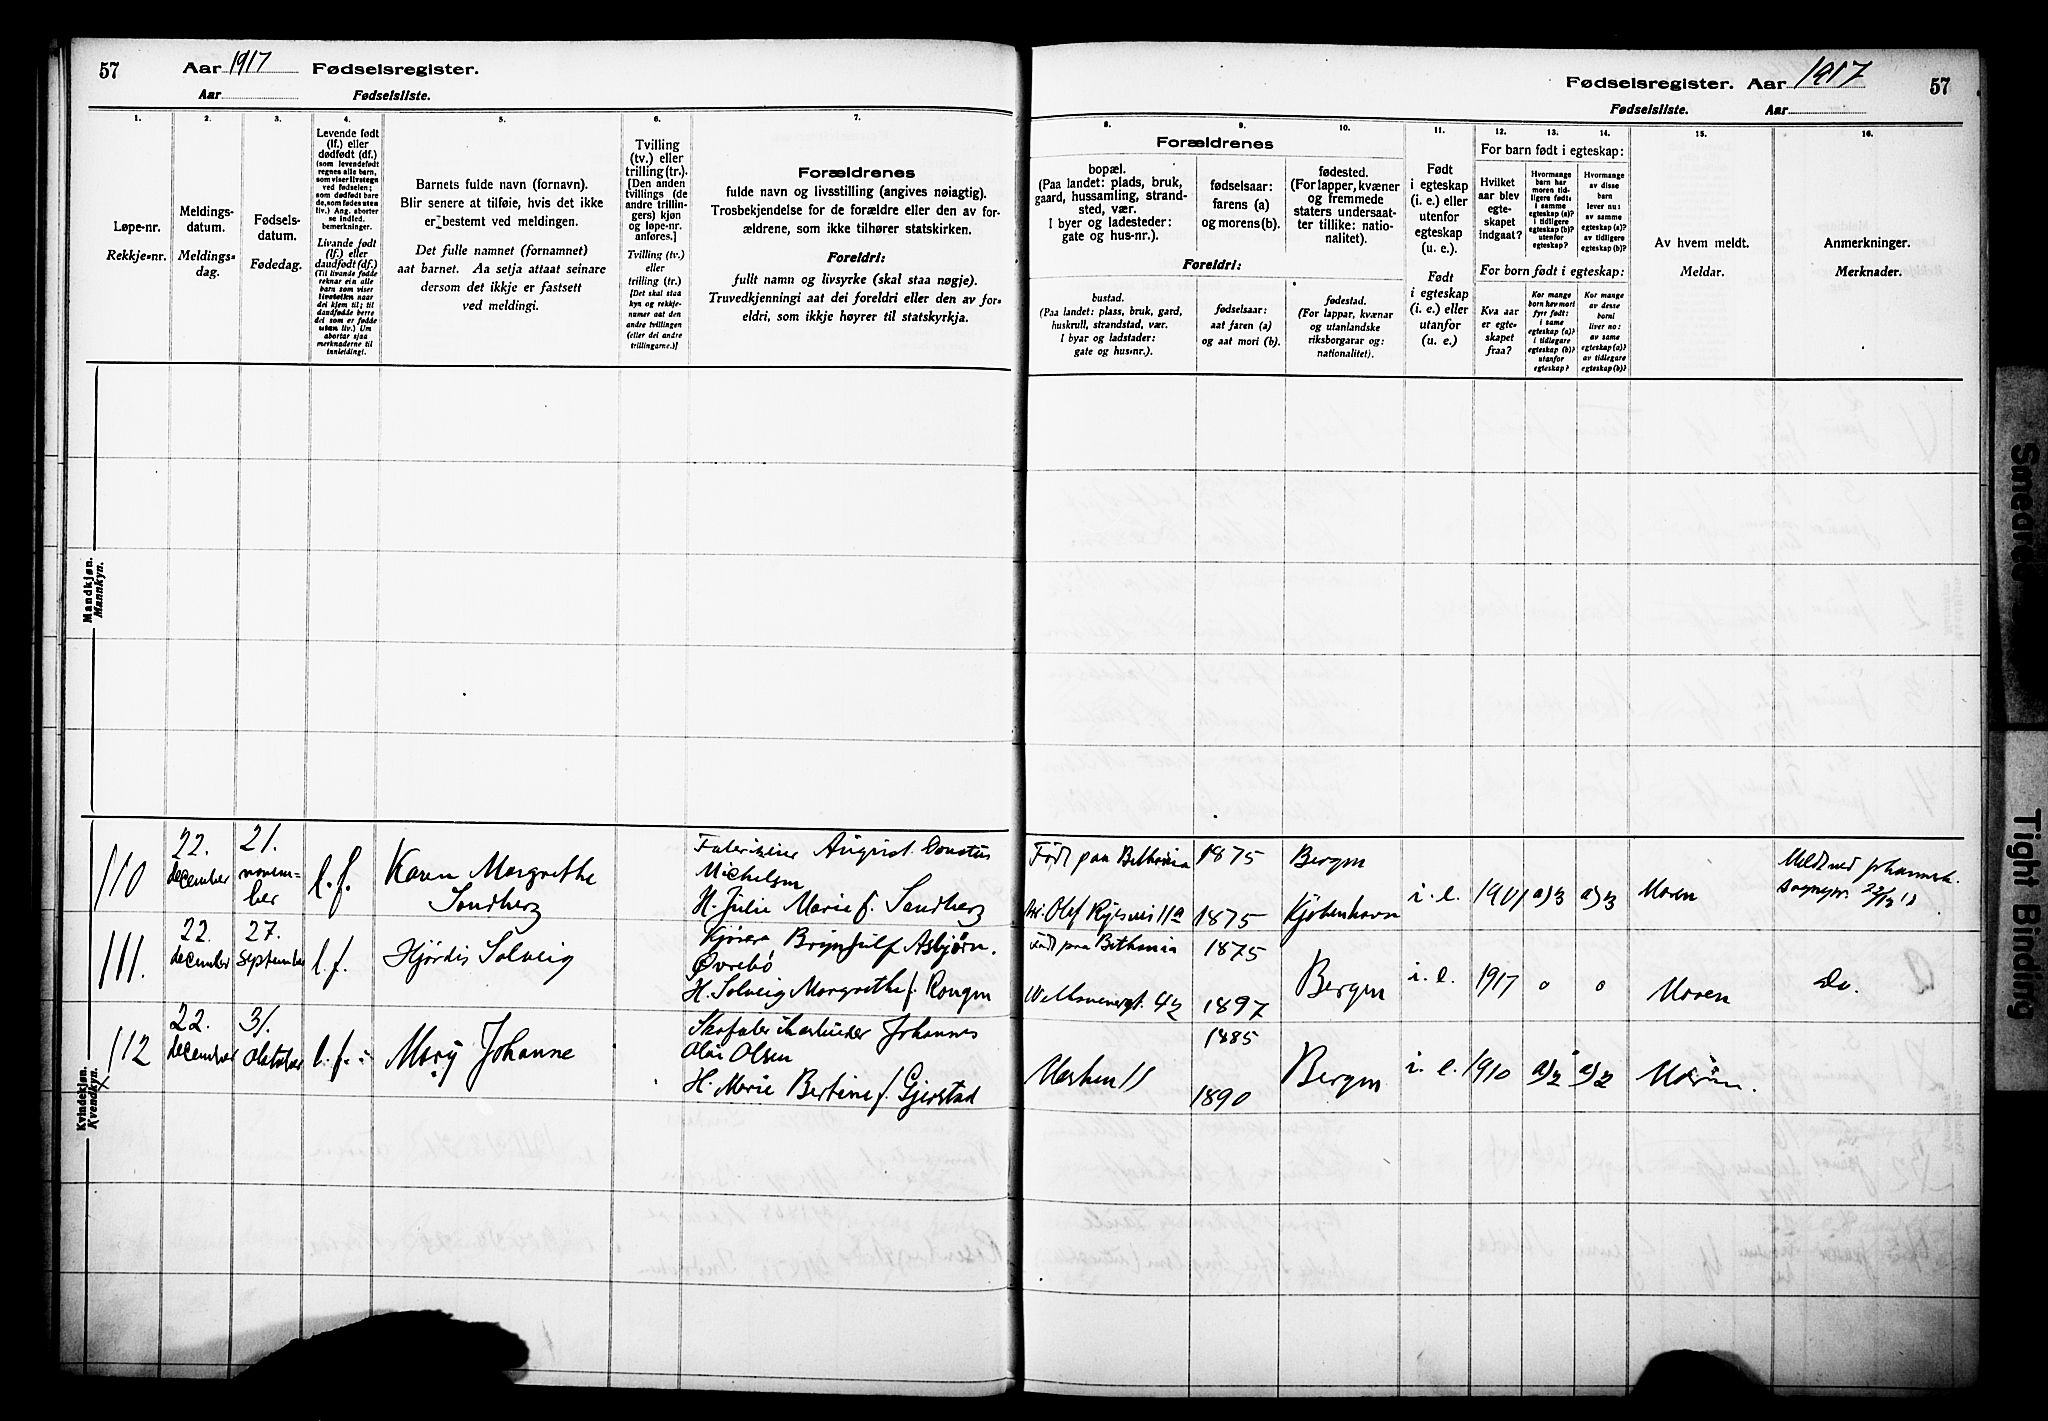 57 Aar 1917 Fødselsregister.
Aar Fødselsliste.
1. 2. 3. 4. 5. 6. 7.
Løpe-nr.
Rekkje-nr.
Meldings-
datum.
Meldings-
dag.
Fødsels-
datum.
Fødedag.
Levende født
(lf.) eller
dødfødt (df.)
(som levendefødt
regnes alle barn,
som viser livstegn
ved fødselen;
som dødfødt bare
de, som fødes uten
liv.) Ang. aborter
se indled.
bemerkninger.
Livande født
(lf.) eller
daudfødt (df.)
(Til livande fødde
reknar ein alle
born som viser
livsteikn naar
dei kjem til; til
daudfødde berre
dei som er fødde
utan liv.) Um
abortar sjaa
merknaderne til
innleidingi.
Barnets fulde navn (fornavn).
Blir senere at tilføie, hvis det ikke
er bestemt ved meldingen.
Det fulle namnet (fornamnet)
aat barnet. Aa setja attaat seinare
dersom det ikkje er fastsett
ved meldingi.
Tvilling
(tv.) eller
trilling (tr.).
[Den anden
tvillings (de
andre trillin-
gers) kjøn
og løpe-nr.
anføres.]
Tvilling (tv.)
eller
trilling (tr.)
[Det skal staa
kyn og rekkje-
numer aat den
andre tvillingen
(eller dei andre
trillingarne.)]
Forældrenes
fulde navn og livsstilling (angives nøiagtig).
Trosbekjendelse for de forældre eller den av for-
ældrene, som ikke tilhører statskirken.
Foreldri:
fullt namn og livsyrke (skal staa nøgje).
Truvedkjenningi aat dei foreldri eller den av for-
eldri, som ikkje høyrer til statskyrkja.
Mandkjøn.
Mannkyn.
110 22. december 21. novem-
ber l. f. Karen Margrethe
Sandherz August
Michelsen
H. Julie Marie f. Sandherz
111. 22. december 27. september l. f. Hjørdis Solveig Brynjulf Asbjørn
Øvrebø
H. Solveig Margrethe f. Rongen
112 22. december 31. oktober l. f. Mary Johanne Johannes
Olai Olsen
H. Marie Bertine f. Gjerstad
Kvindekjøn.
Kvendkyn.
Fødselsregister. Aar 1917 57
Fødselsliste. Aar
8. 9. 10. 11. 12. 13. 14. 15. 16.
Forældrenes
bopæl.
(Paa landet: plads, bruk,
gaard, hussamling, strand-
sted, vær.
I byer og ladesteder:
gate og hus-nr.).
fødselsaar:
farens (a)
og morens (b).
fødested.
(For lapper, kvæner
og fremmede
staters undersaat-
ter tillike: natio-
nalitet).
Foreldri:
bustad.
(Paa landet: plass, bruk, gard,
huskrull, strandstad, vær.
I byar og ladstader:
gate og hus-nr.).
fødselsaar:
aat faren (a)
og aat mori (b).
fødestad.
(For lappar, kvænar
og utanlandske
riksborgarar og:
nationalitet).
Født
i egteskap
(i. e.) eller
utenfor
egteskap
(u. e.).
Født
i egteskap
(i. e.) eller
utanfor
(u. e.).
For barn født i egteskap:
Hvilket
aar blev
egte-
skapet
indgaat?
Hvormange
barn har
moren tid-
ligere født:
i samme
egteskap (a)?
i tidligere
egteskap (b)?
utenfor
egteskap?
Hvormange
av disse
barn
lever nu:
av samme
egteskap (a)?
av tidligere
egteskap (b)?
For born født i egteskap:
Kva aar
er egte-
skapet
fraa?
Kor mange
born hev mori
fyrr født:
i same
egteskap (a)?
i tidlegare
egteskap (b)?
utanfor
egteskap?
Kor mange
av desse
borni
liver no:
av same
egteskap (a)?
av tidlegare
egteskap (b)?
Av hvem meldt.
Meldar.
Anmerkninger.
Merknader.
Født paa Bethania 1875 Bergen
Olaf Ryesvei 11a 1875 Kjøbenhavn i. e. 1901 a)3 a)3 Moren
Født paa Bethania 1875
1897 Bergen i. e. 1917 0 0 Moren Do.
1885
Marken 11 1890 Bergen i. e. 1910 a)2 a)2 Moren.
Smearing
Tight Binding